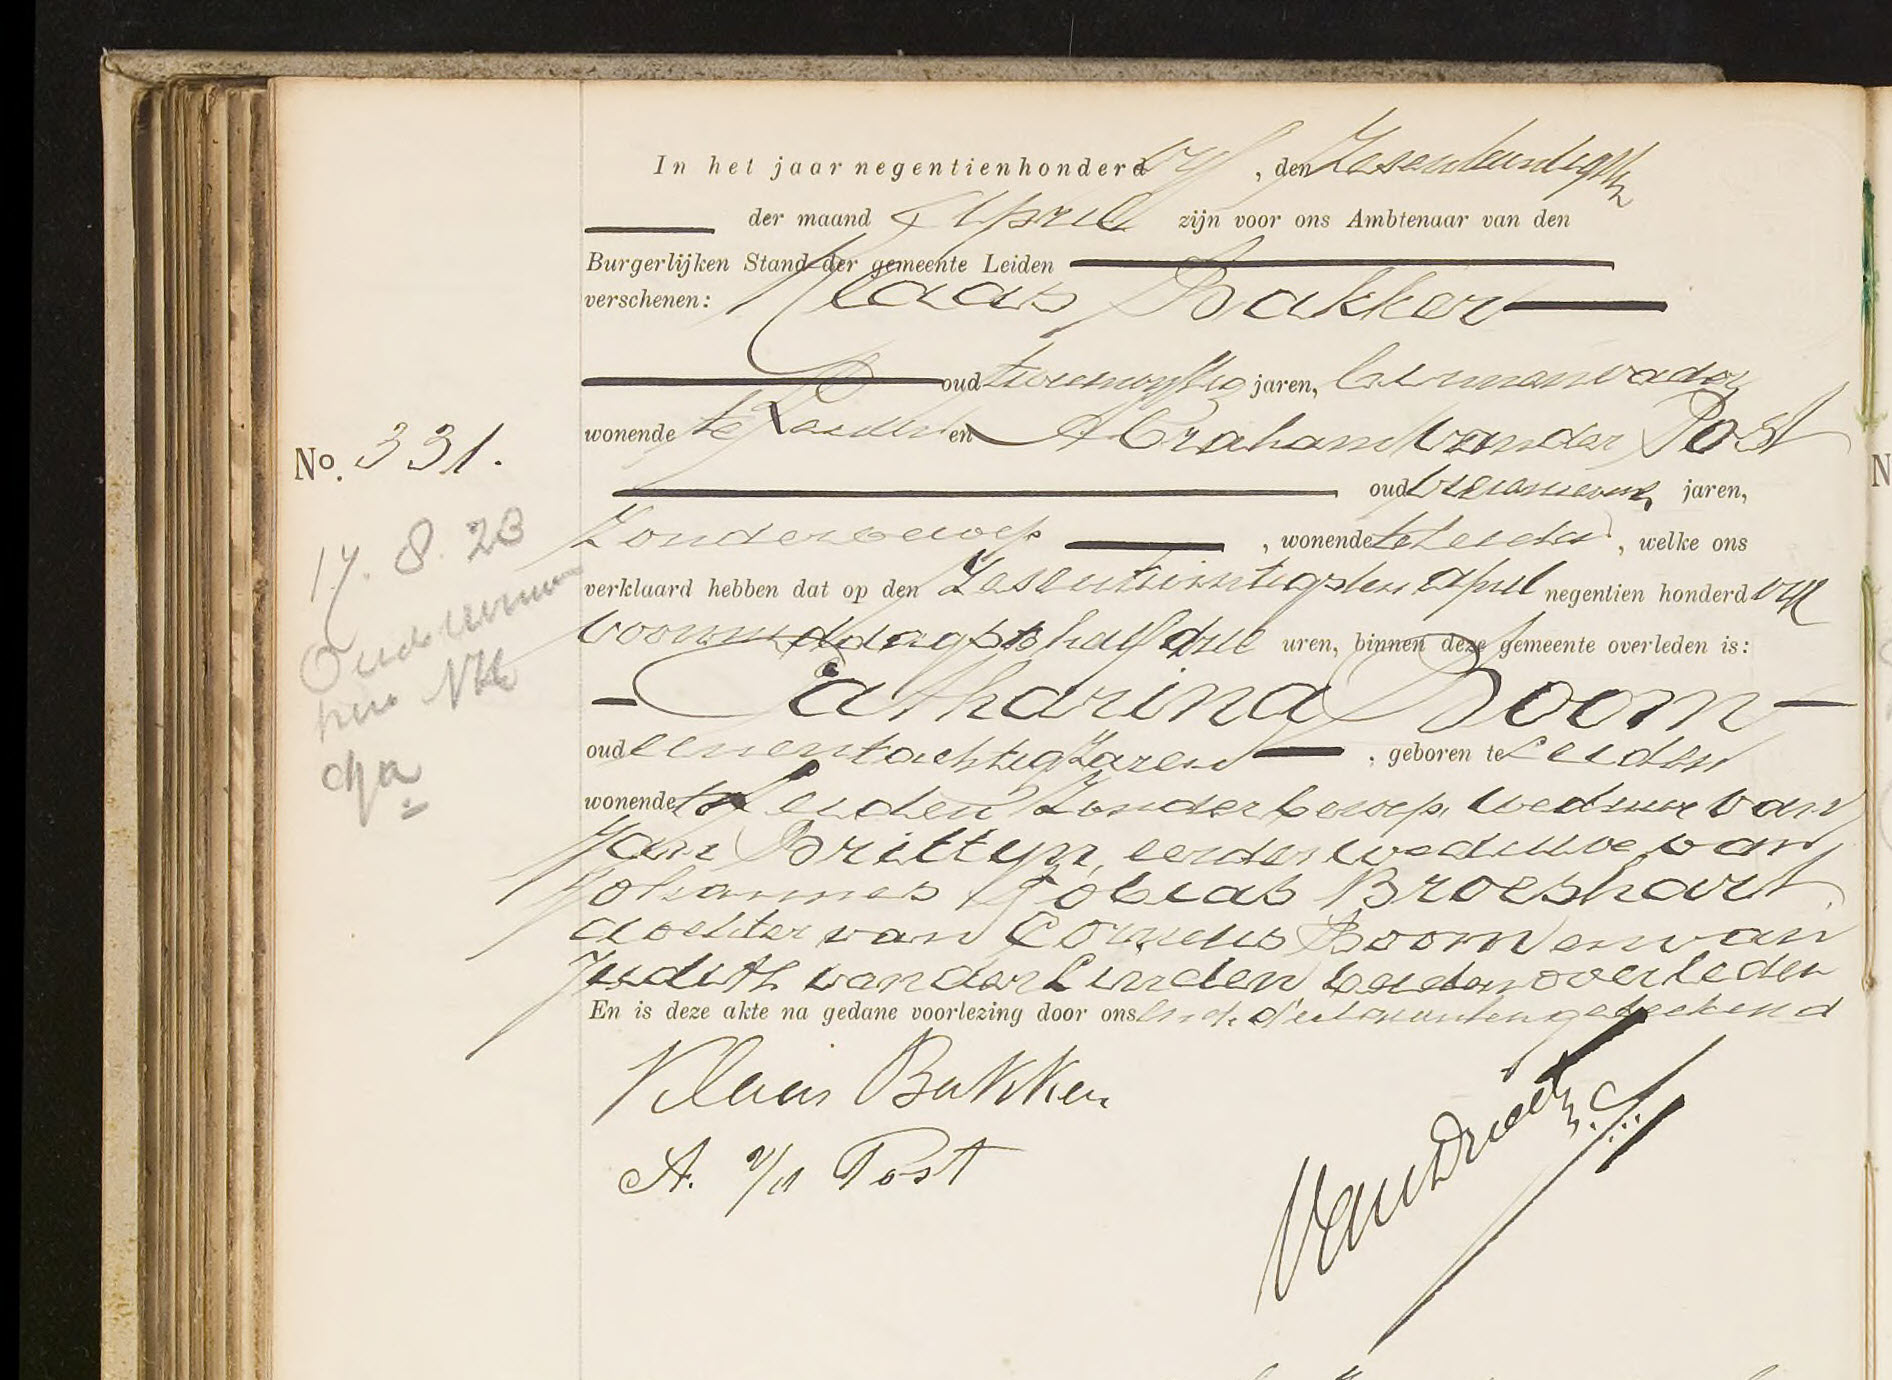 In het jaar negentienhonderd vijf, den Zesentwintigsten
der maand April zijn voor ons Ambtenaar van den
Burgerlijken Stand der gemeente Leiden
verschenen: Klaas Bakker
oud jaren, binnenvader
wonende te Leiden en Abraham van der Post
oud jaren,
zonder beroep, wonende te Leiden, welke ons
No. 331.
17. 8. 23
verklaard hebben dat op den Zesentwintigsten April negentien honderd vijf
voormiddags te half drie uren, binnen deze gemeente overleden is:
Catharina Boom
oud eenentachtig Jaren, geboren te Leiden
wonende te Leiden zonder beroep, weduwe van
Jan Brittijn, eerder weduwe van
Johannes Tobias Broeshart
dochter van Cornelis Boom en van
Judith van der Linden beiden overleden
En is deze akte na gedane voorlezing door ons en de declaranten geteekend
Klaas Bakker
A. v/d Post